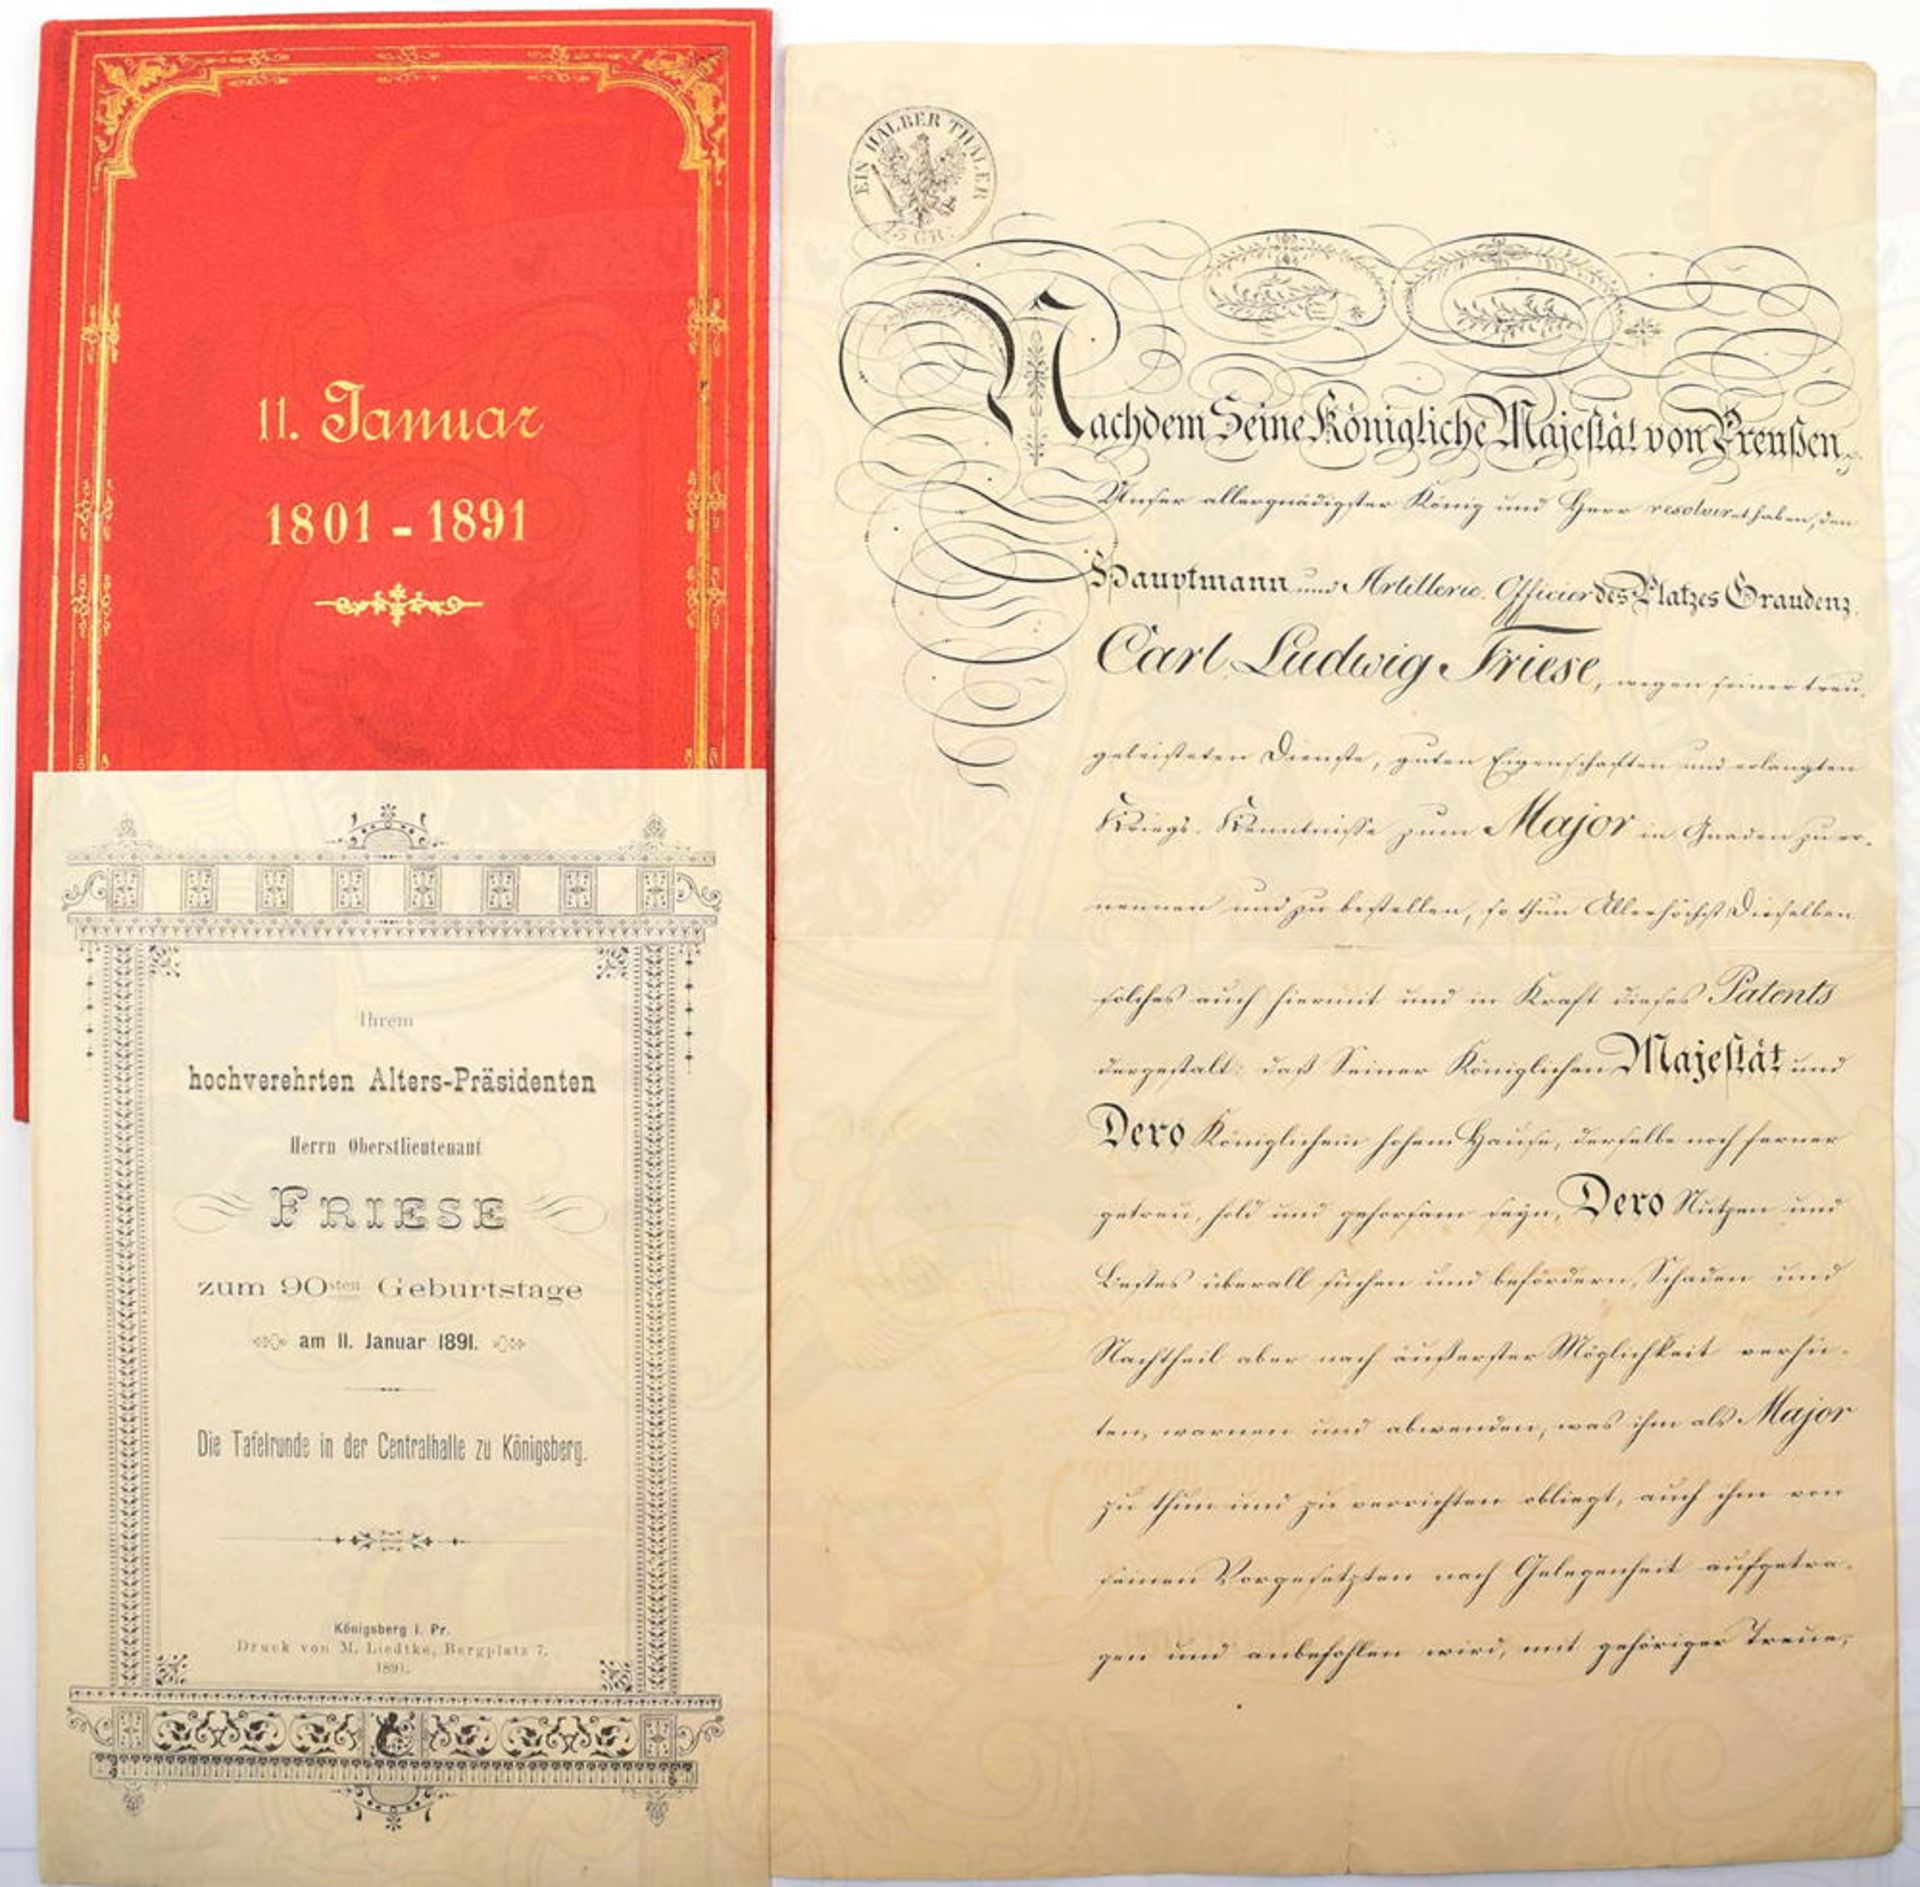 11. Januar
1801 - 1891
Ihrem
hochverehrten Alters-Präsidenten
Herrn Oberstlieutenant
FRIESE
zum 90sten Geburtstage
am 11. Januar 1891.
Die Tafelrunde in der Centralhalle zu Königsberg.
Königsberg i. Pr.
Druck von M. Liedtke, Bergplatz 7.
1891.
EIN HALBER THALER
15 GR.
Nachdem Seine Königliche Majestät von Preußen,
Unser allergnädigster König und Herr resolviret haben, den
Hauptmann und Artillerie-Officier des Platzes Graudenz
Carl Ludwig Friese, wegen seiner treu-
geleisteten Dienste, guten Eigenschaften und erlangten
Kriegs-Kenntnisse zum Major in Gnaden zu er-
nennen und zu bestellen, so thun Allerhöchst Dieselben
solches auch hiermit und in Kraft dieses Patents
dergestalt: daß Seiner Königlichen Majestät und
Dero Königlichem hohem Hause, derselbe noch ferner
getreu, hold und gehorsam seyn, Dero Nutzen und
Bestes überall suchen und befördern, Schaden und
Nachtheil aber nach äußerster Möglichkeit verhü-
ten, warnen und abwenden, was ihm als Major
zu thun und zu verrichten obliegt, auch ihm von
seinen Vorgesetzten nach Gelegenheit aufgetra-
gen und anbefohlen wird, mit gehöriger Treue,